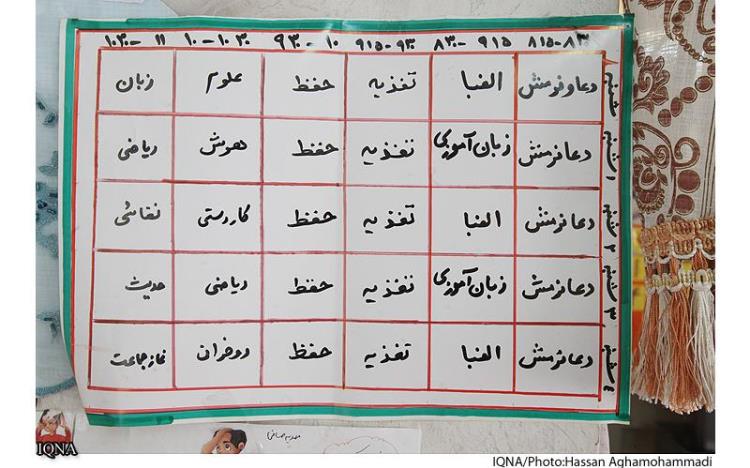 ۸۱۵-۸۳۰ ۸۳۰-۹۱۵ ۹۱۵-۹۳۰ ۹۳۰-۱۰ ۱۰-۱۰۳۰ ۱۰۳۰-۱۱
شنبه دعا و نرمش الفبا تغذیه حفظ علوم زبان
۱ شنبه دعا نرمش زبان آموزی تغذیه حفظ هوش ریاضی
۲ شنبه دعا نرمش الفبا تغذیه حفظ کاردستی نقاشی
۳ شنبه دعا نرمش زبان آموزی تغذیه حفظ ریاضی حدیث
۴ شنبه دعا نرمش الفبا تغذیه حفظ روخوان نماز جماعت
IQNA
IQNA/Photo:Hassan Aghamohammadi